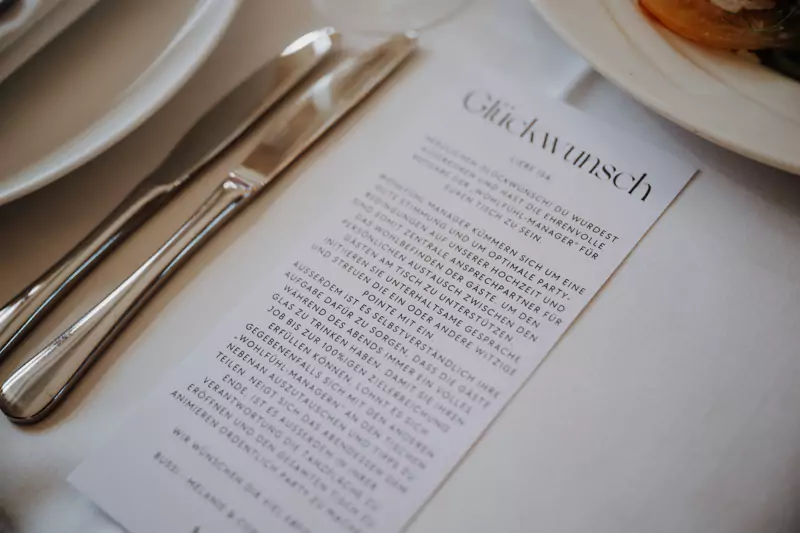 Glückwunsch
LIEBE IDA,
HERZLICHEN GLÜCKWUNSCH! DU WURDEST
AUSERKOREN UND HAST DIE EHRENVOLLE
AUFGABE DER „WOHLFÜHL-MANAGER" FÜR
EUREN TISCH ZU SEIN.
WOHLFÜHL-MANAGER KÜMMERN SICH UM EINE
GUTE STIMMUNG UND UM OPTIMALE PARTY-
BEDINGUNGEN AUF UNSERER HOCHZEIT UND
SIND SOMIT ZENTRALE ANSPRECHPARTNER FÜR
DAS WOHLBEFINDEN DER GÄSTE. UM DEN
PERSÖNLICHEN AUSTAUSCH ZWISCHEN DEN
GÄSTEN AM TISCH ZU UNTERSTÜTZEN,
INITIIEREN SIE UNTERHALTSAME GESPRÄCHE
UND STREUEN DIE EIN ODER ANDERE WITZIGE
POINTE MIT EIN.
AUSSERDEM IST ES SELBSTVERSTÄNDLICH IHRE
AUFGABE DAFÜR ZU SORGEN, DASS DIE GÄSTE
WÄHREND DES ABENDS IMMER EIN VOLLES
GLAS ZU TRINKEN HABEN, DAMIT SIE IHREN
JOB BIS ZUR 100%IGEN ZIELERREICHUNG
ERFÜLLEN KÖNNEN. LOHNT ES SICH
GEGEBENENFALLS SICH MIT DEN ANDEREN
„WOHLFÜHL-MANAGERN" AN DEN TISCHEN
NEBENAN AUSZUTAUSCHEN UND TIPPS ZU
TEILEN. NEIGT SICH DAS ABENDESSEN DEM
ENDE, IST ES AUSSERDEM IN IHRER
VERANTWORTUNG DIE TANZFLÄCHE ZU
ERÖFFNEN UND DEN GESAMTEN TISCH ZU
ANIMIEREN ORDENTLICH PARTY ZU MACHEN.
WIR WÜNSCHEN DIR VIEL
BUSSI - MELANIE &